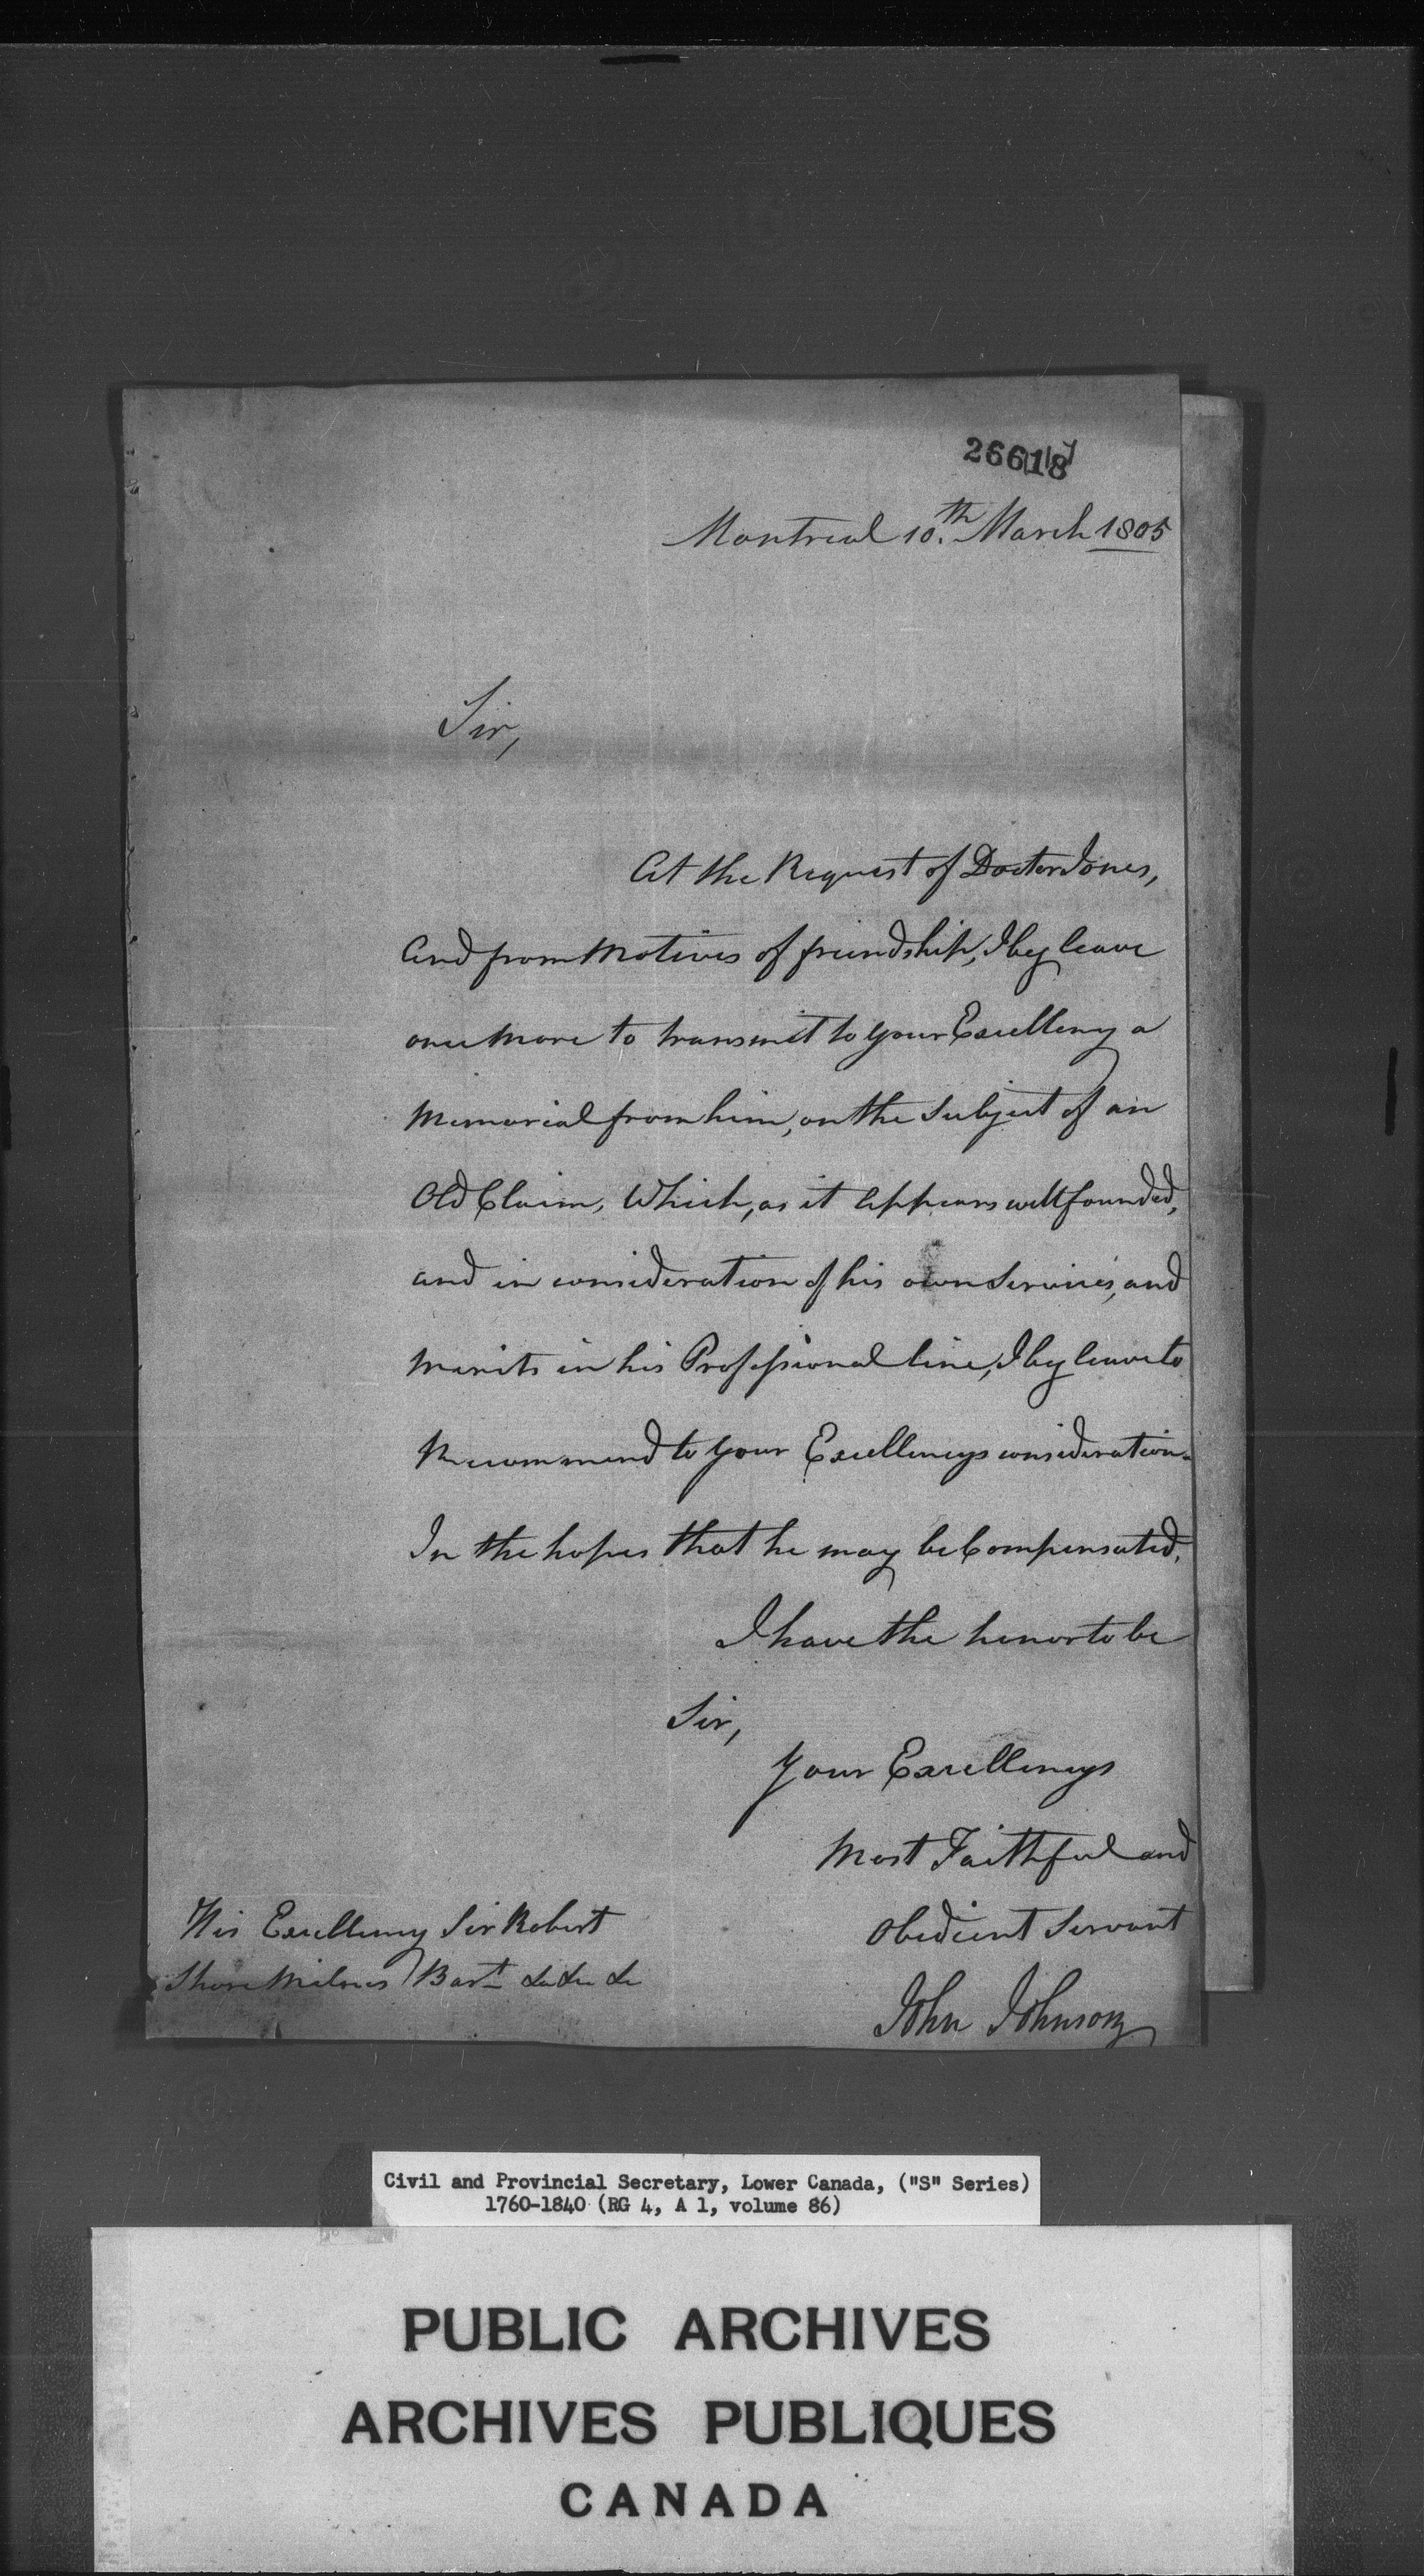 26618
Montreal 10.th March 1805
Sir,
At the Request of Doctor Jones,
And from Motives of friendship, I beg leave
once more to transmit to your Excellency a
Memorial from him, on the Subject of an
Old Claim, Which, as it Appears well founded,
and in consideration of his own Services, and
Merits in his Professional line, I beg leave to
Recommend to your Excellencys consideration.
In the hopes that he may be Compensated.
I have the honor to be
Sir,
Your Excellencys
Most Faithful and
Obedient Servant
John Johnson
His Excellency Sir Robert
Shore Milnes Bart. &c &c &c
Civil and Provincial Secretary, Lower Canada, ("S" Series)
1760-1840 (RG 4, A 1, volume 86)
PUBLIC ARCHIVES
ARCHIVES PUBLIQUES
CANADA